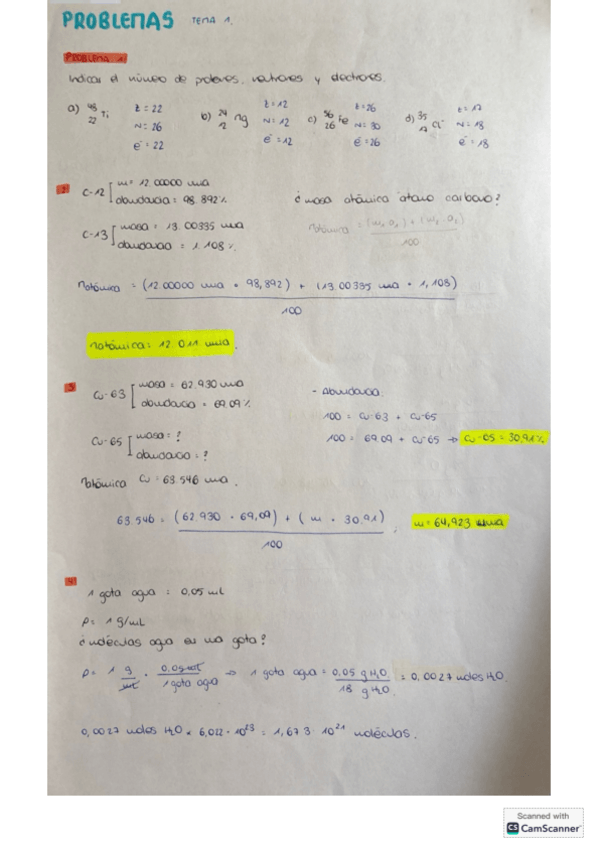 PROBLEMAS TEMA 1.
PROBLEMA 1
Indicar el número de protones, neutrones y electrones.
a) 48 22 Ti Z = 22 N = 26 e⁻ = 22
b) 24 12 Mg Z = 12 N = 12 e⁻ = 12
c) 56 26 Fe Z = 26 N = 30 e⁻ = 26
d) 35 17 Cl⁻ Z = 17 N = 18 e⁻ = 18
2
C-12 [ m = 12.00000 uma
abundancia = 98.892%
¿masa atómica átomo carbono?
C-13 [ masa = 13.00335 uma
abundancia = 1.108%
Matómica = (m₁ a₁) + (m₂ a₂) / 100
Matómica = (12.00000 uma · 98,892) + (13.00335 uma · 1,108) / 100
Matómica = 12.011 uma.
3
Cu-63 [ masa = 62.930 uma
abundancia = 69.09%
- Abundancia:
100 = Cu-63 + Cu-65
Cu-65 [ masa = ?
abundancia = ?
100 = 69.09 + Cu-65 → Cu-65 = 30,91%
Matómica Cu = 63.546 uma.
63.546 = (62.930 · 69,09) + (m · 30.91) / 100 ; m = 64,923 uma
4
1 gota agua = 0,05 mL
ρ = 1 g/mL
¿moléculas agua en una gota?
ρ = 1 g/mL · 0,05 mL / 1 gota agua → 1 gota agua = 0,05 g H₂O / 18 g H₂O. = 0,0027 moles H₂O.
0,0027 moles H₂O × 6,022 · 10²³ = 1,673 · 10²¹ moléculas.
Scanned with
CS CamScanner